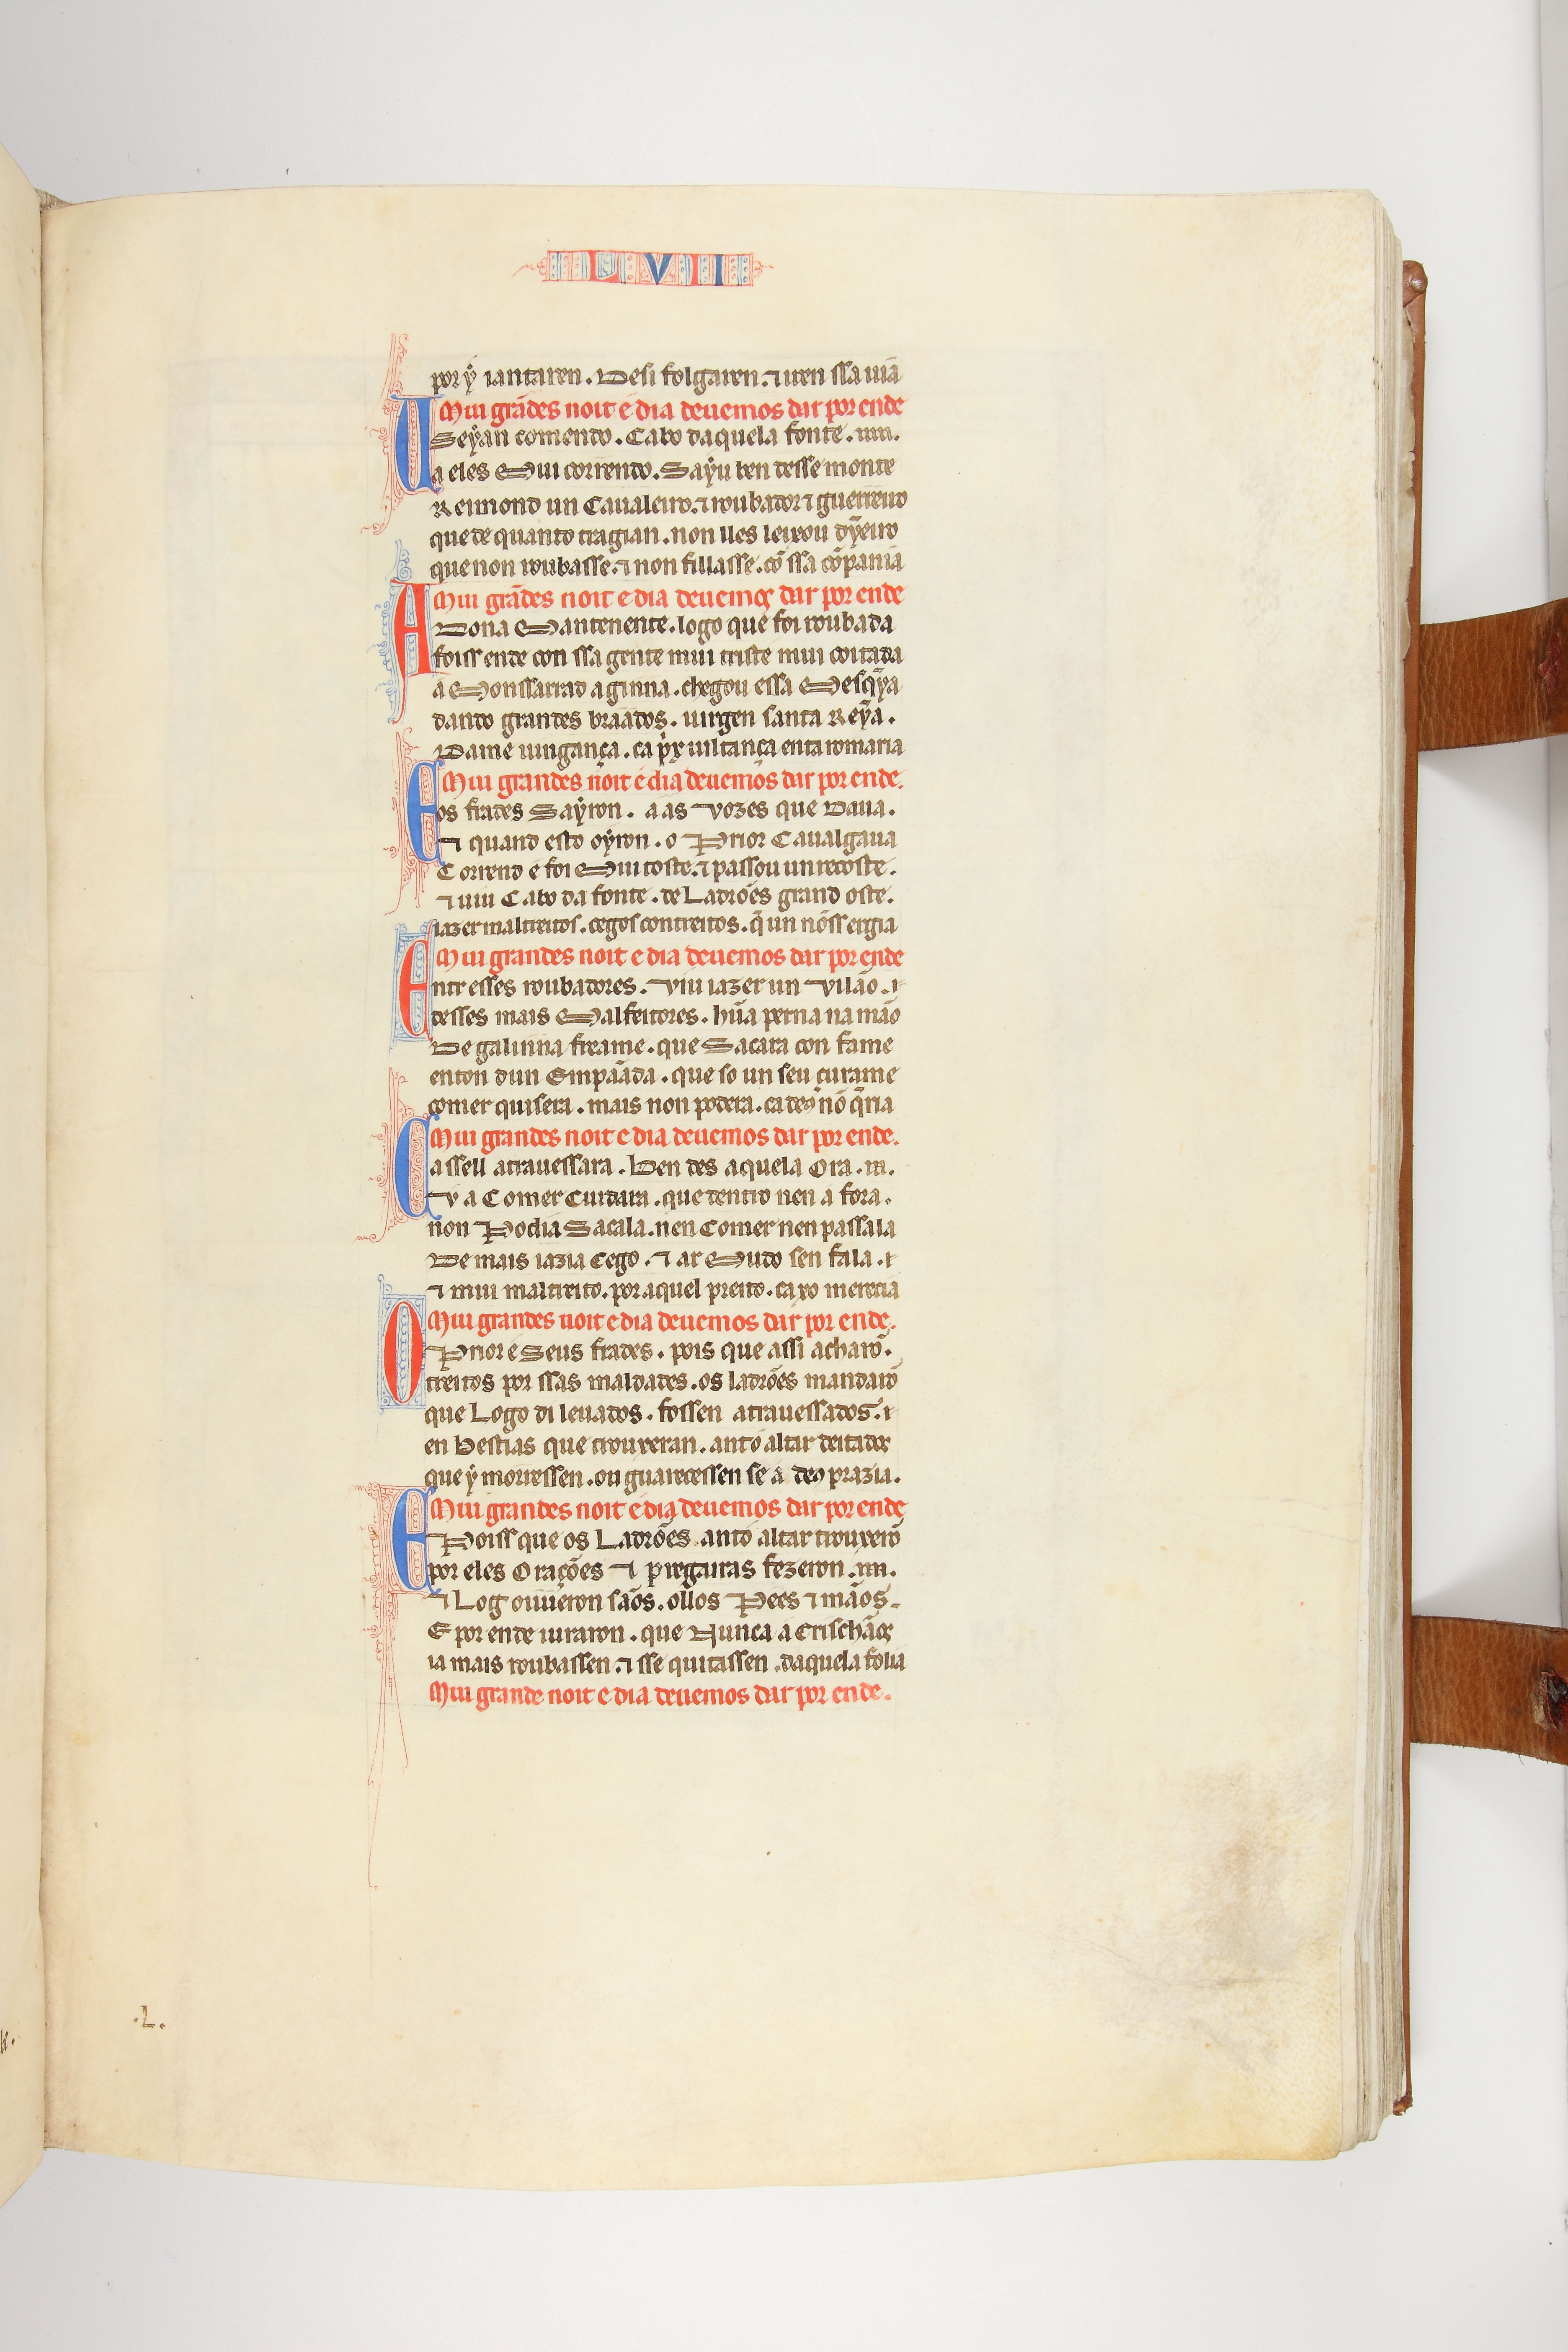 LVII
por ẏ iantaren. Desi folgaren. ⁊ iren ssa uiã
Mui grãdes noit e dia deuemos dar por ende
U Seÿan comendo. Cabo daquela fonte. iiii.
a eles Mui correndo. Saÿu ben desse monte
Reimond un Caualeiro. ⁊ roubador ⁊ guerreiro
que de quanto tragian. non lles leixou dỹeiro
que non roubasse. ⁊ non fillasse. cõ ssa cõpania
Mui grãdes noit e dia deuemos dar por ende
A Dona Mantenente. logo que foi roubada
foiss ende con ssa gente mui triste mui coitada
a Monssarrad aginna. chegou essa Mesq̃ỹa
dando grandes braados. uirgen santa Reỹa.
Dame uingança. ca pṙx uiltança en ta romaria
Mui grandes noit e dia deuemos dar por ende.
E os frades Saÿron. a as vozes que Daua.
⁊ quand esto oÿron. o Prior Caualgaua
Corrend e foi Mui toste. ⁊ passou un recoste.
⁊ uiu Cabo da fonte. de Ladrões grand oste.
iazer maltreitos. cegos contreitos. q̃ un nõ ss ergia
Mui grandes noit e dia deuemos dar por ende
E ntr esses roubadores. viu iazer un vilão. i
desses mais Malfeitores. hũa perna na mão
De galinna freame. que Sacara con fame
enton dun Empãada. que so un seu çurame
comer quisera. mais non podera. ca deꝯ nõ q̃ria
Mui grandes noit e dia deuemos dar por ende.
C a ssell atrauessara. Ben des aquela Ora. iii.
v a Comer Cuidara. que dentro nen a fora.
non Podia Sacala. nen Comer nen passala
De mais iazia Cego. ⁊ ar Mudo sen fala. i
⁊ mui maltreito. por aquel preito. ca xo merecia
Mui grandes noit e dia deuemos dar por ende.
O Prior e Seus frades. pois que assi acharõ.
treitos por ssas maldades. os ladrões mandarõ
que Logo di leuados. fossen atrauessados. i
en Bestias que trouxeran. ant o altar deitados
que ẏ morressen. ou guarecessen se a deꝯ prazia.
Mui grandes noit e dia deuemos dar por ende
E Poiss que os Ladrões. ant o altar trouxerõ
por eles Orações ⁊ pregarias fezeron. iiii.
⁊ Log ouueron sãos. ollos Pees ⁊ mãos.
E por ende iuraron. que Nunca a Crischãos
ia mais roubassen. ⁊ sse quitassen. daquela folia
Mui grande noit e dia deuemos dar por ende.
.L.